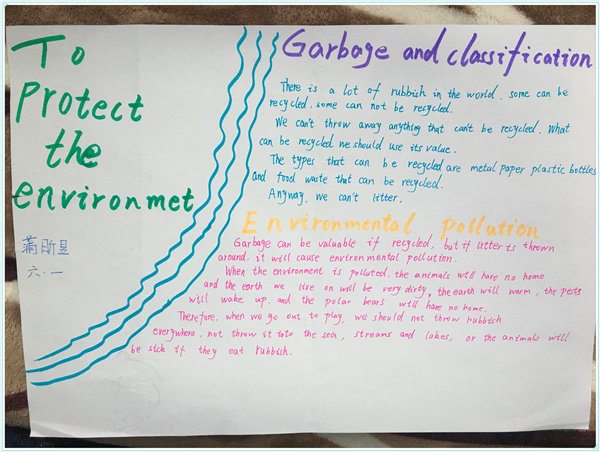 To
Protect
the
environmet
六·一
Garbage and classification
There is a lot of rubbish in the world. some can be
recycled, some can not be recycled.
We can't throw away anything that can't be recycled. What
can be recycled. we should use its value.
The types that can be recycled are metal paper plastic bottles
and food waste that can be recycled.
Anyway, we can't litter.
Environmental pollution
Garbage can be valuable if recycled, but if litter is thrown
around. it will cause environmental pollution.
When the environment is polluted. the animals will have no home
and the earth we live on will be very dirty, the earth will warm, the pests
will wake up. and the polar bears will have no home.
Therefore. when we go out to play, we should not throw rubbish
everywhere, not throw it into the sea, streams and lakes, or the animals will
be sick if they eat rubbish.